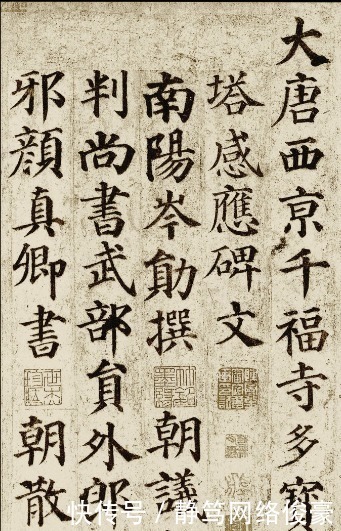 大唐西京千福寺多寶
塔感應碑文
南陽岑勛撰 朝議
判尚書武部員外郎
邪顏真卿書 朝散
快传号 / 静笃网络俊豪